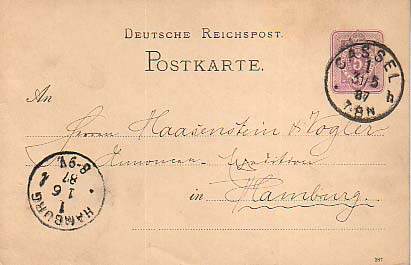 DEUTSCHE REICHSPOST.
POSTKARTE.
CASSEL
1
31/5
87
7-8N
h
An
Herren Haasenstein & Vogler
Annoncen-Expedition
in Hamburg.
HAMBURG
1
1 6
87
8-9V.